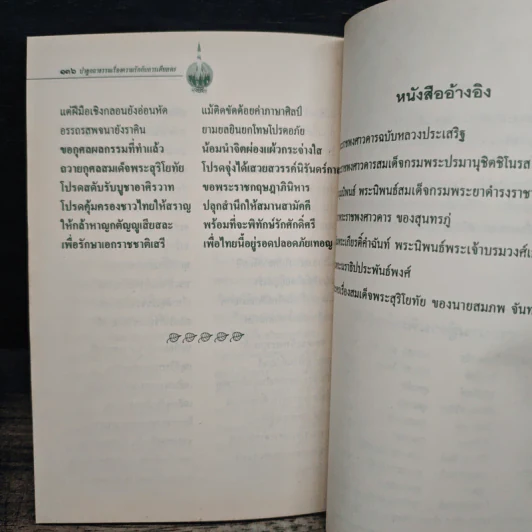 ๑๓๖ ปาฐกถาธรรมเรื่องความรักกับการเสียสละ
แต่ฝีมือเชิงกลอนยังอ่อนหัด แม้คิดขัดด้อยค่าภาษาศิลป์
อรรถรสพจนายังราคิน ยามยลยินยกโทษโปรดอภัย
ขอกุศลผลกรรมที่ทำแล้ว น้อมนำจิตผ่องแผ้วกระจ่างใส
ถวายกุศลสมเด็จพระสุริโยทัย โปรดจุ่งได้เสวยสวรรค์นิรันดร์กาล
โปรดสดับรับบูชาอาศิรวาท ขอพระราชกฤษฎาภินิหาร
โปรดคุ้มครองชาวไทยให้สราญ ปลุกสำนึกให้สมานสามัคคี
ให้กล้าหาญกตัญญูเสียสละ พร้อมที่จะพิทักษ์รักศักดิ์ศรี
เพื่อรักษาเอกราชชาติเสรี เพื่อไทยนี้อยู่รอดปลอดภัยเทอญ
หนังสืออ้างอิง
พงศาวดารฉบับหลวงประเสริฐ
พงศาวดารสมเด็จกรมพระปรมานุชิตชิโนรส
นิพนธ์ พระนิพนธ์สมเด็จกรมพระยาดำรงราชา
พระราชพงศาวดาร ของสุนทรภู่
พระเกียรติคำฉันท์ พระนิพนธ์พระเจ้าบรมวงศ์เ
นราธิปประพันธ์พงศ์
เรื่องสมเด็จพระสุริโยทัย ของนายสมภพ จันท